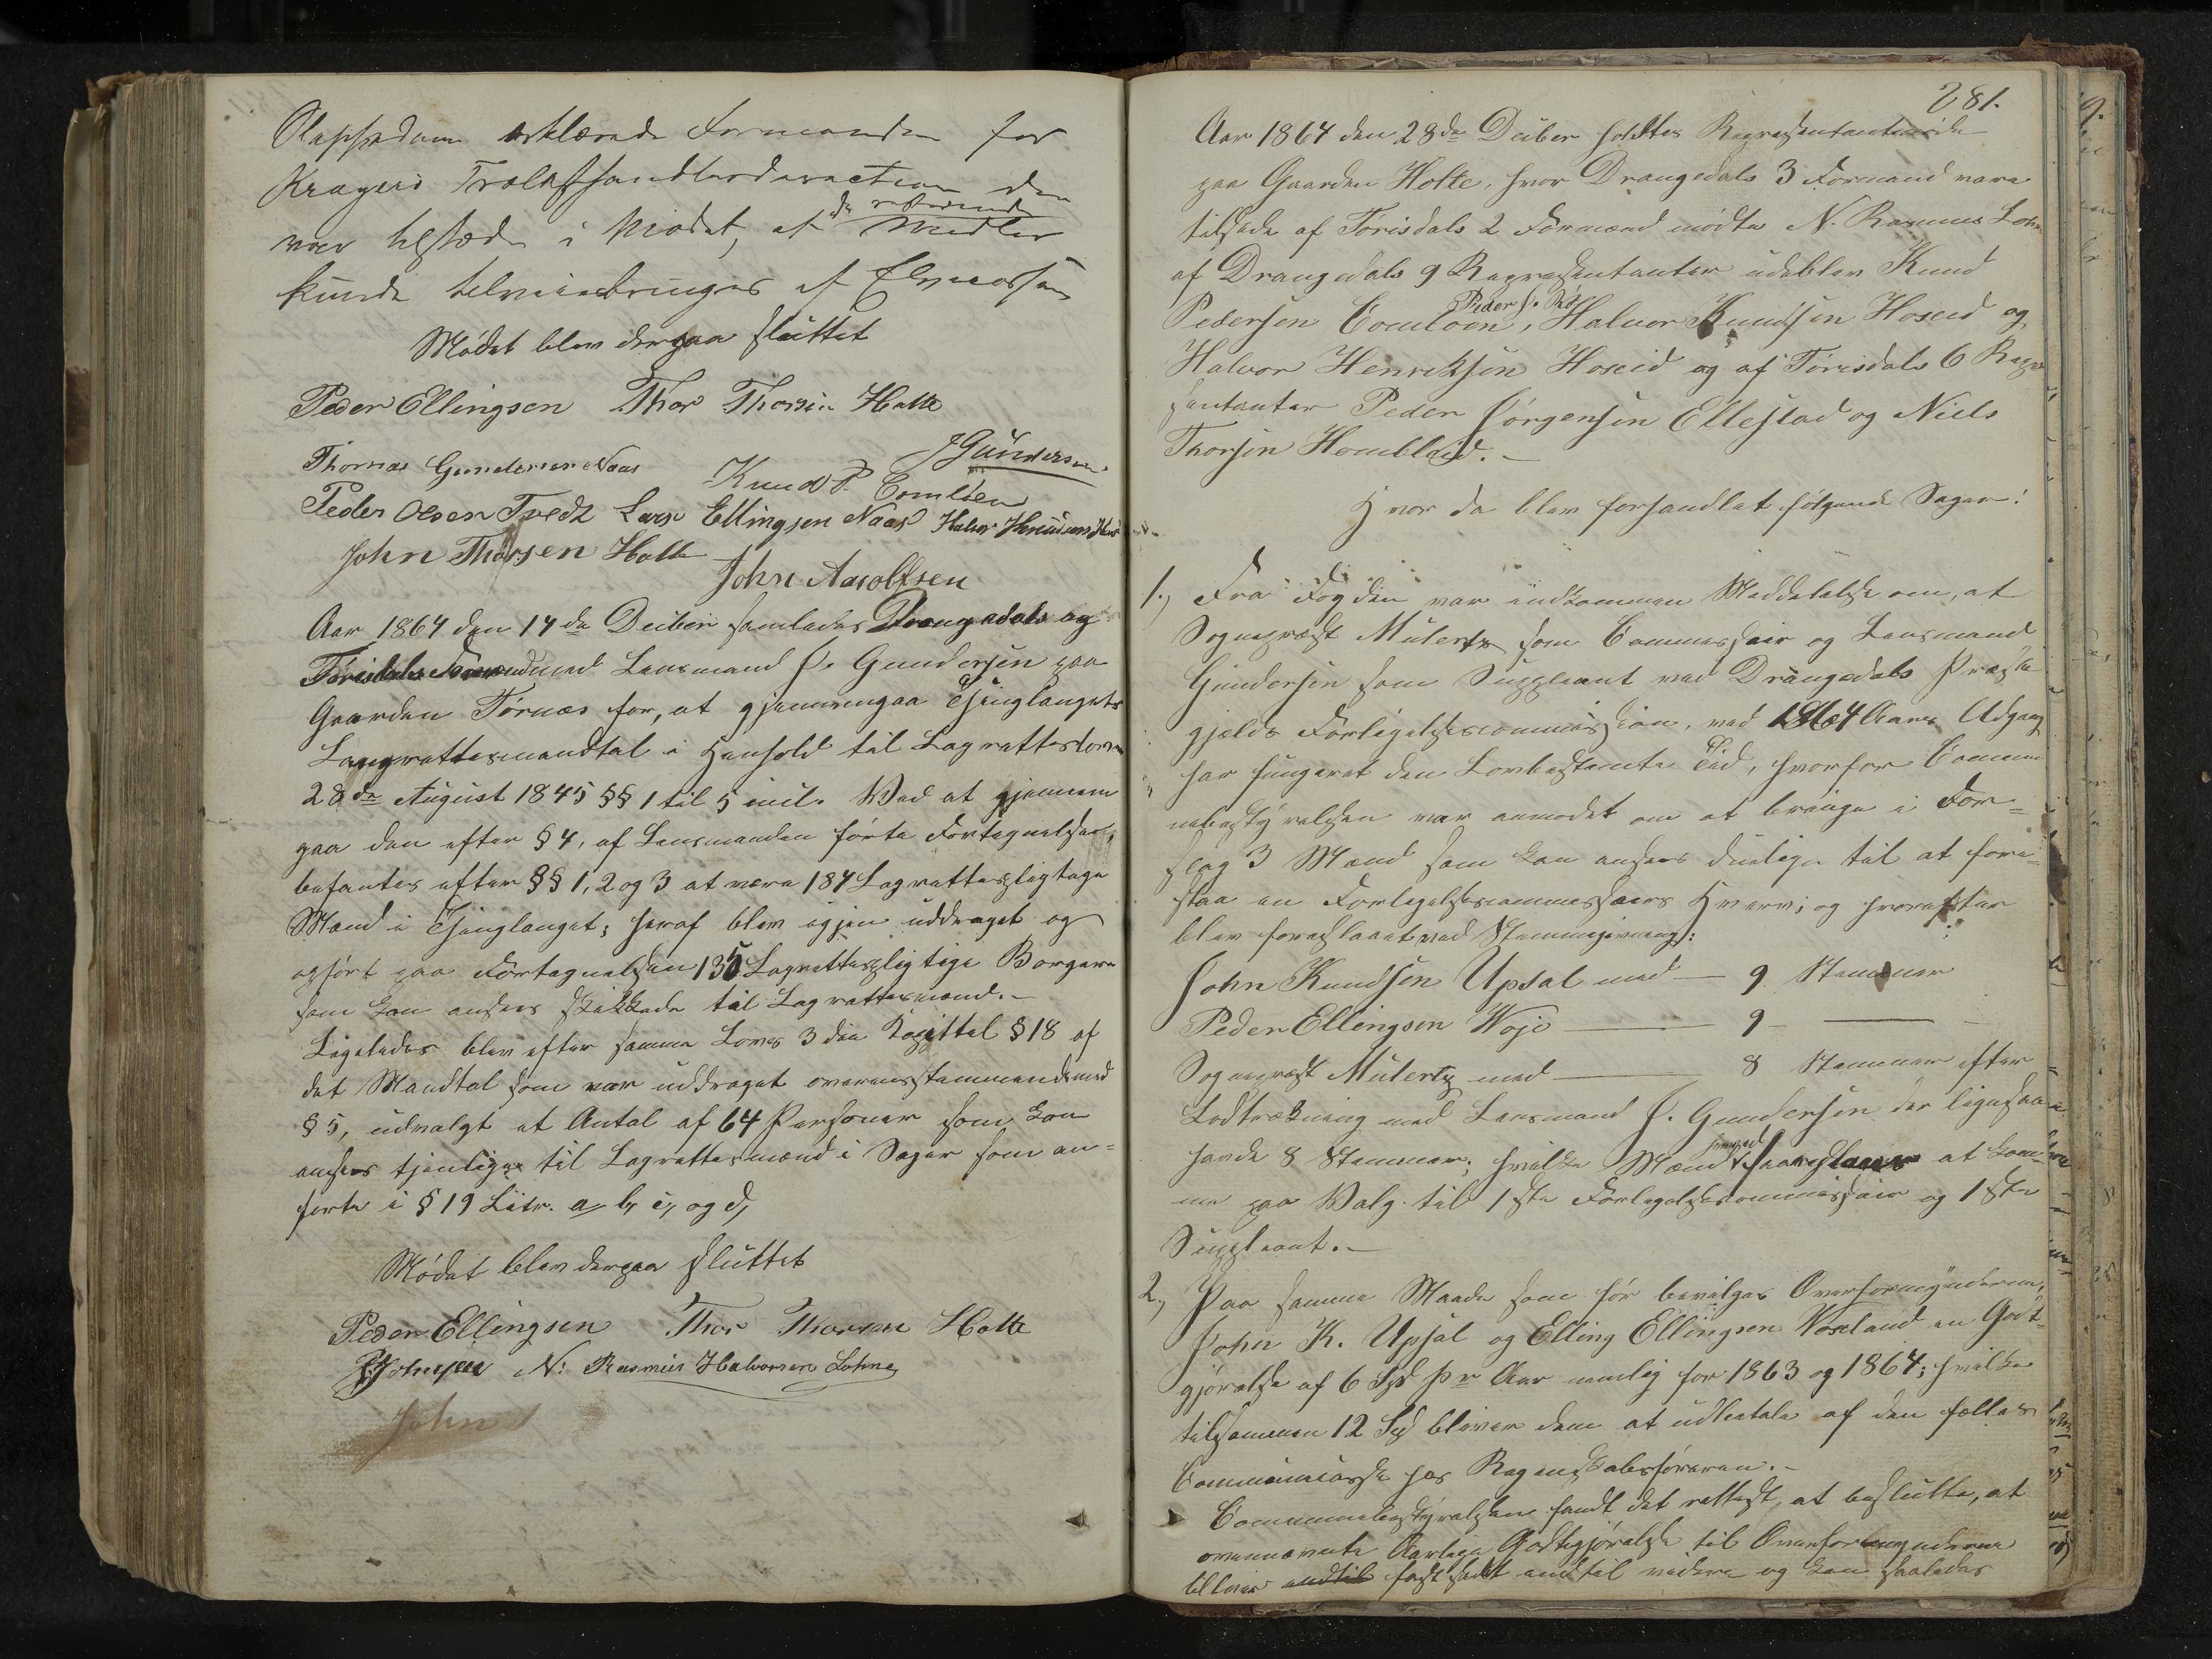 erklærede Formanden for
Kragerø Trælasthandlerdirection der
var tilstede i Mødet, at de resterende Midler
kunde tilveiebringes af
Mødet blev derpaa sluttet
Peder Ellingsen Thor Thorsen Holte
JGundersen
Thomas Gundersen Naas Knud P. Comloen
Peder Olsen Tvedt Lars Ellingsen Naas Halvor
John Thorsen Holte
John Aasolfsen
Aar 1864 den 14de Decbber samledes Drangedals og
Tørisdals Formænd med Lensmand J. Gundersen paa
Gaarden Tørnæs for, at gjennemgaa Thinglaugets
Laugrettesmandtal i Henhold til Lagretteslov
28de August 1845 §§ 1 til 5 incl. Ved at gjennem
gaa den efter § 4, af Lensmanden førte Fortegnelse,
befantes efter §§ 1, 2 og 3 at være 184 Lagrettespligtige
Mænd i Thinglauget; heraf blev igjen uddraget og
opført paa Fortegnelsen 135 Lagrettespligtige Borgere
som kan ansees skikkede til Lagrettesmænd.-
Ligeledes blev efter samme Lovs 3die Kapittel § 18 af
det Mandtal som var uddraget overensstemmende med
§ 5, udvalgt et Antal af 64 Personer som kan
ansees tjenlige til Lagrettesmænd i Sager som an=
førte i § 19 Litr. a, b, c, og d,
Mødet blev derpaa sluttet
Peder Ellingsen Thor Thorsen Holte
N: Rasmus Halvorsen Lohne
John
281.
Aar 1864 den 28de Decbber holdtes Repræsentantmøde
paa Gaarden Holte, hvor Drangedals 3 Formænd vare
tilstede af Tørisdals 2 Formænd mødte N. Rasmus Lohne
af Drangedals 9 Repræsentanter udeblev Knud
Pedersen Comloen, Halvor Knudsen Hoseid og
Halvor Henriksen Hoseid og af Tørisdals 6 Repræ
sentanter Peder Jørgensen Ellestad og Niels
Thorsen
Hvor da blev forhandlet følgende Sager:
1., Fra Fogden var indkommen Meddelelse om, at
Sognepræst Mulertz som Commissair og Lensmand
Gundersen som Suppleant ved Drangedals Præste
gjelds Forligelsescommission, ved 1864 Aars Udgang
har fungeret den Lovbestemte Tid, hvorfor Commu
nebestyrelsen var anmodet om at bringe i For=
slag 3 Mænd som kan ansees duelige til at fore=
staa en Forligelsescommissairs Hverv; og hvorefter
blev foreslaaet ved Stemmegivning:
John Knudsen Upsal med — 9 Stemmer
Peder Ellingsen Woje — 9 —
Sognepræst Mulertz med — 8 Stemmer efter
Lodtrækning med Lensmand J. Gundersen der ligesaa
havde 8 Stemmer; hvilke Mænd herved foreslaaes at kom=
me paa Valg til 1ste Forligelsescommissair og 1ste
Suppleant.-
2., Paa samme Maade som før bevilges Overformynderne,
John K. Upsal og Elling Ellingsen Voseland en Godt=
gjørelse af 6 Spd pr Aar nemlig for 1863 og 1864; hvilke
tilsammen 12 Spd bliver dem at udbetale af den fælles
Communecasse hos Regnskabsføreren.-
Communebestyrelsen fandt det rettest, at beslutte, at
ovennævnte Aarlige Godtgjørelse til Overformynderne
bliver indtil fastsadt indtil videre og kan saaledes